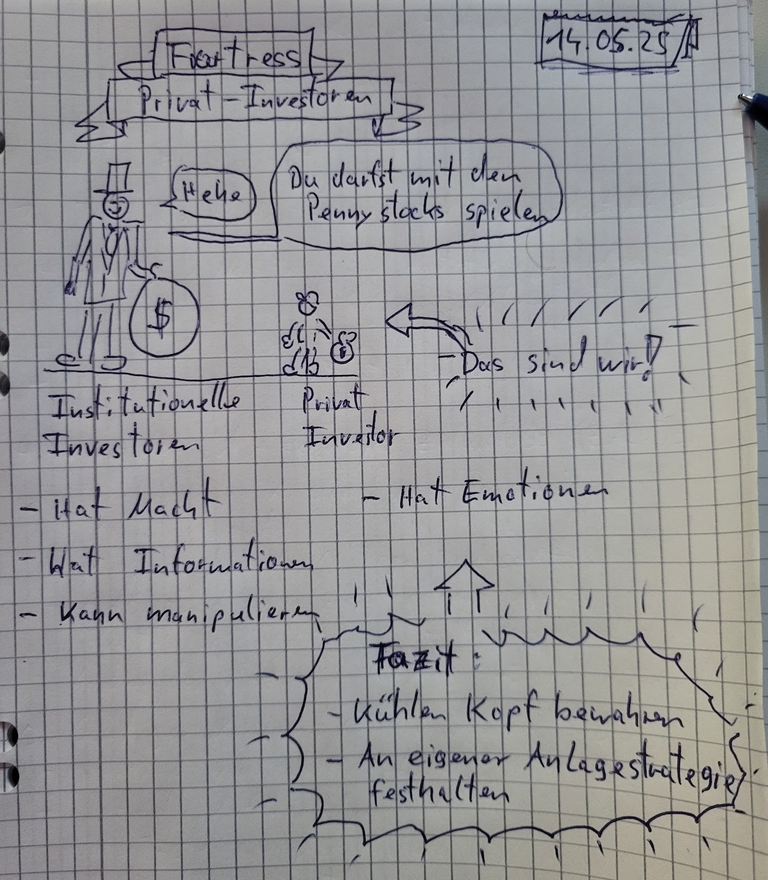 14.05.25
Foortress
Privat-Investoren
Hehe
Du darfst mit den
Pennystocks spielen
$
$
Das sind wir!
Institutionelle
Investoren
Privat
Investor
- Hat Macht
- Hat Informationen
- Kann manipulieren
- Hat Emotionen
Fazit:
- Kühlen Kopf bewahren
- An eigener Anlagestrategie
festhalten